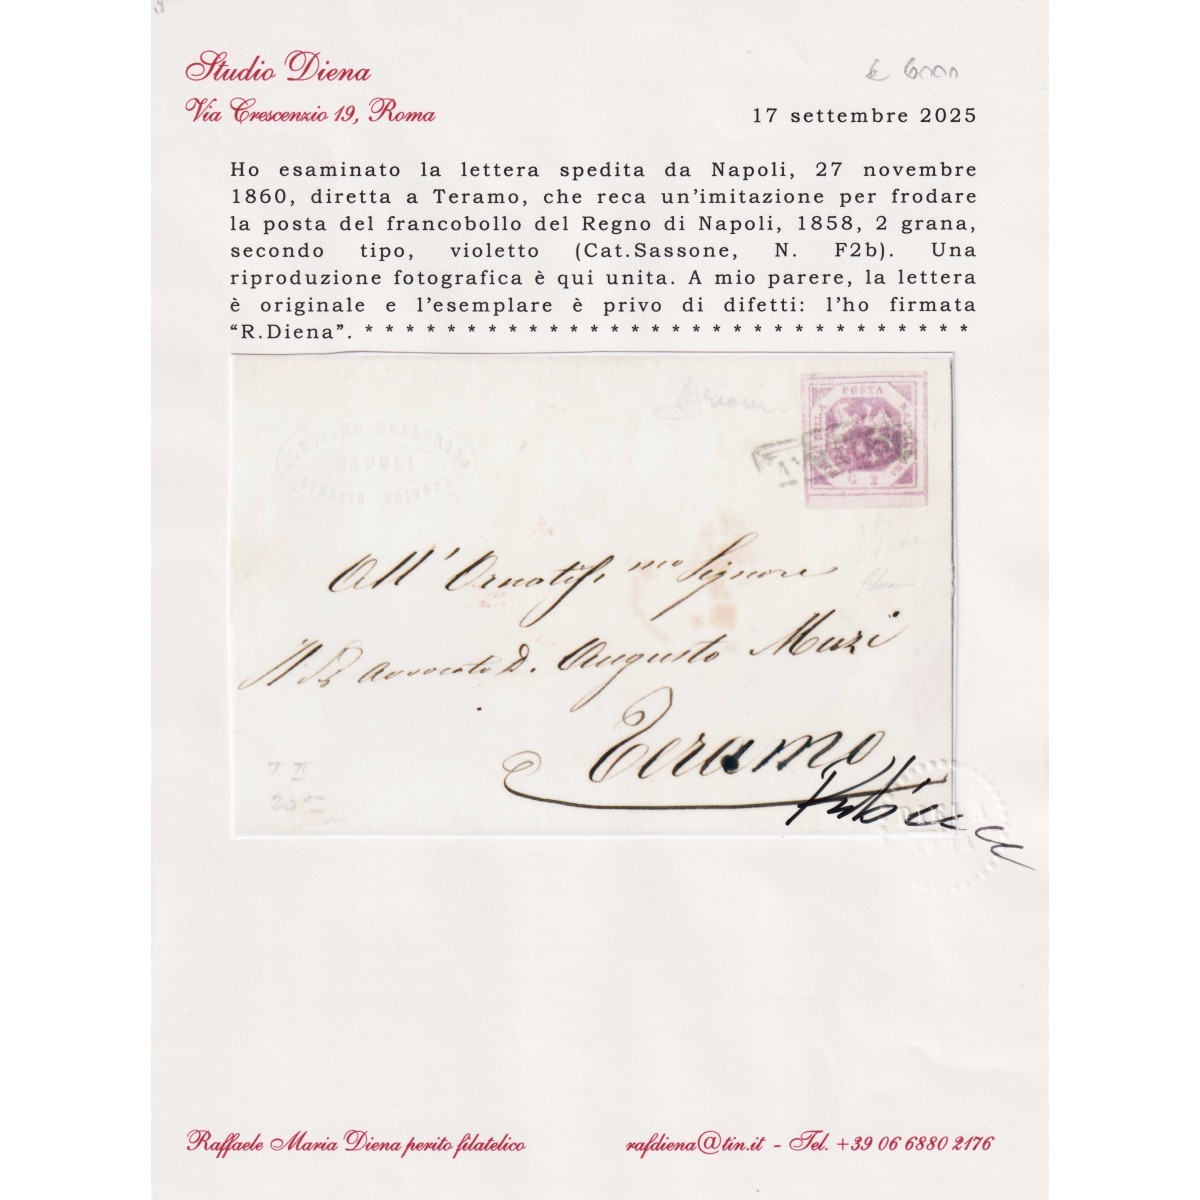 Studio Diena
€ 6000
Via Crescenzio 19, Roma
17 settembre 2025
Ho esaminato la lettera spedita da Napoli, 27 novembre
1860, diretta a Teramo, che reca un'imitazione per frodare
la posta del francobollo del Regno di Napoli, 1858, 2 grana,
secondo tipo, violetto (Cat.Sassone, N. F2b). Una
riproduzione fotografica è qui unita. A mio parere, la lettera
è originale e l'esemplare è privo di difetti: l'ho firmata
“R.Diena”. * * * * * * * * * * * * * * * * * * * * * * * * * * * * * * *
POSTA
DELLA
G 2
NAPOLI
All' Ornatiss.mo Signore
Il Sr Avvocato D. Augusto Muzi
Teramo
T II
Raffaele Maria Diena perito filatelico
rafdiena@tin.it - Tel. +39 06 6880 2176